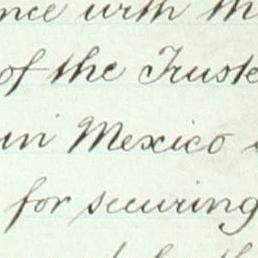 nce with th
of the Truste
in Mexico
for securing